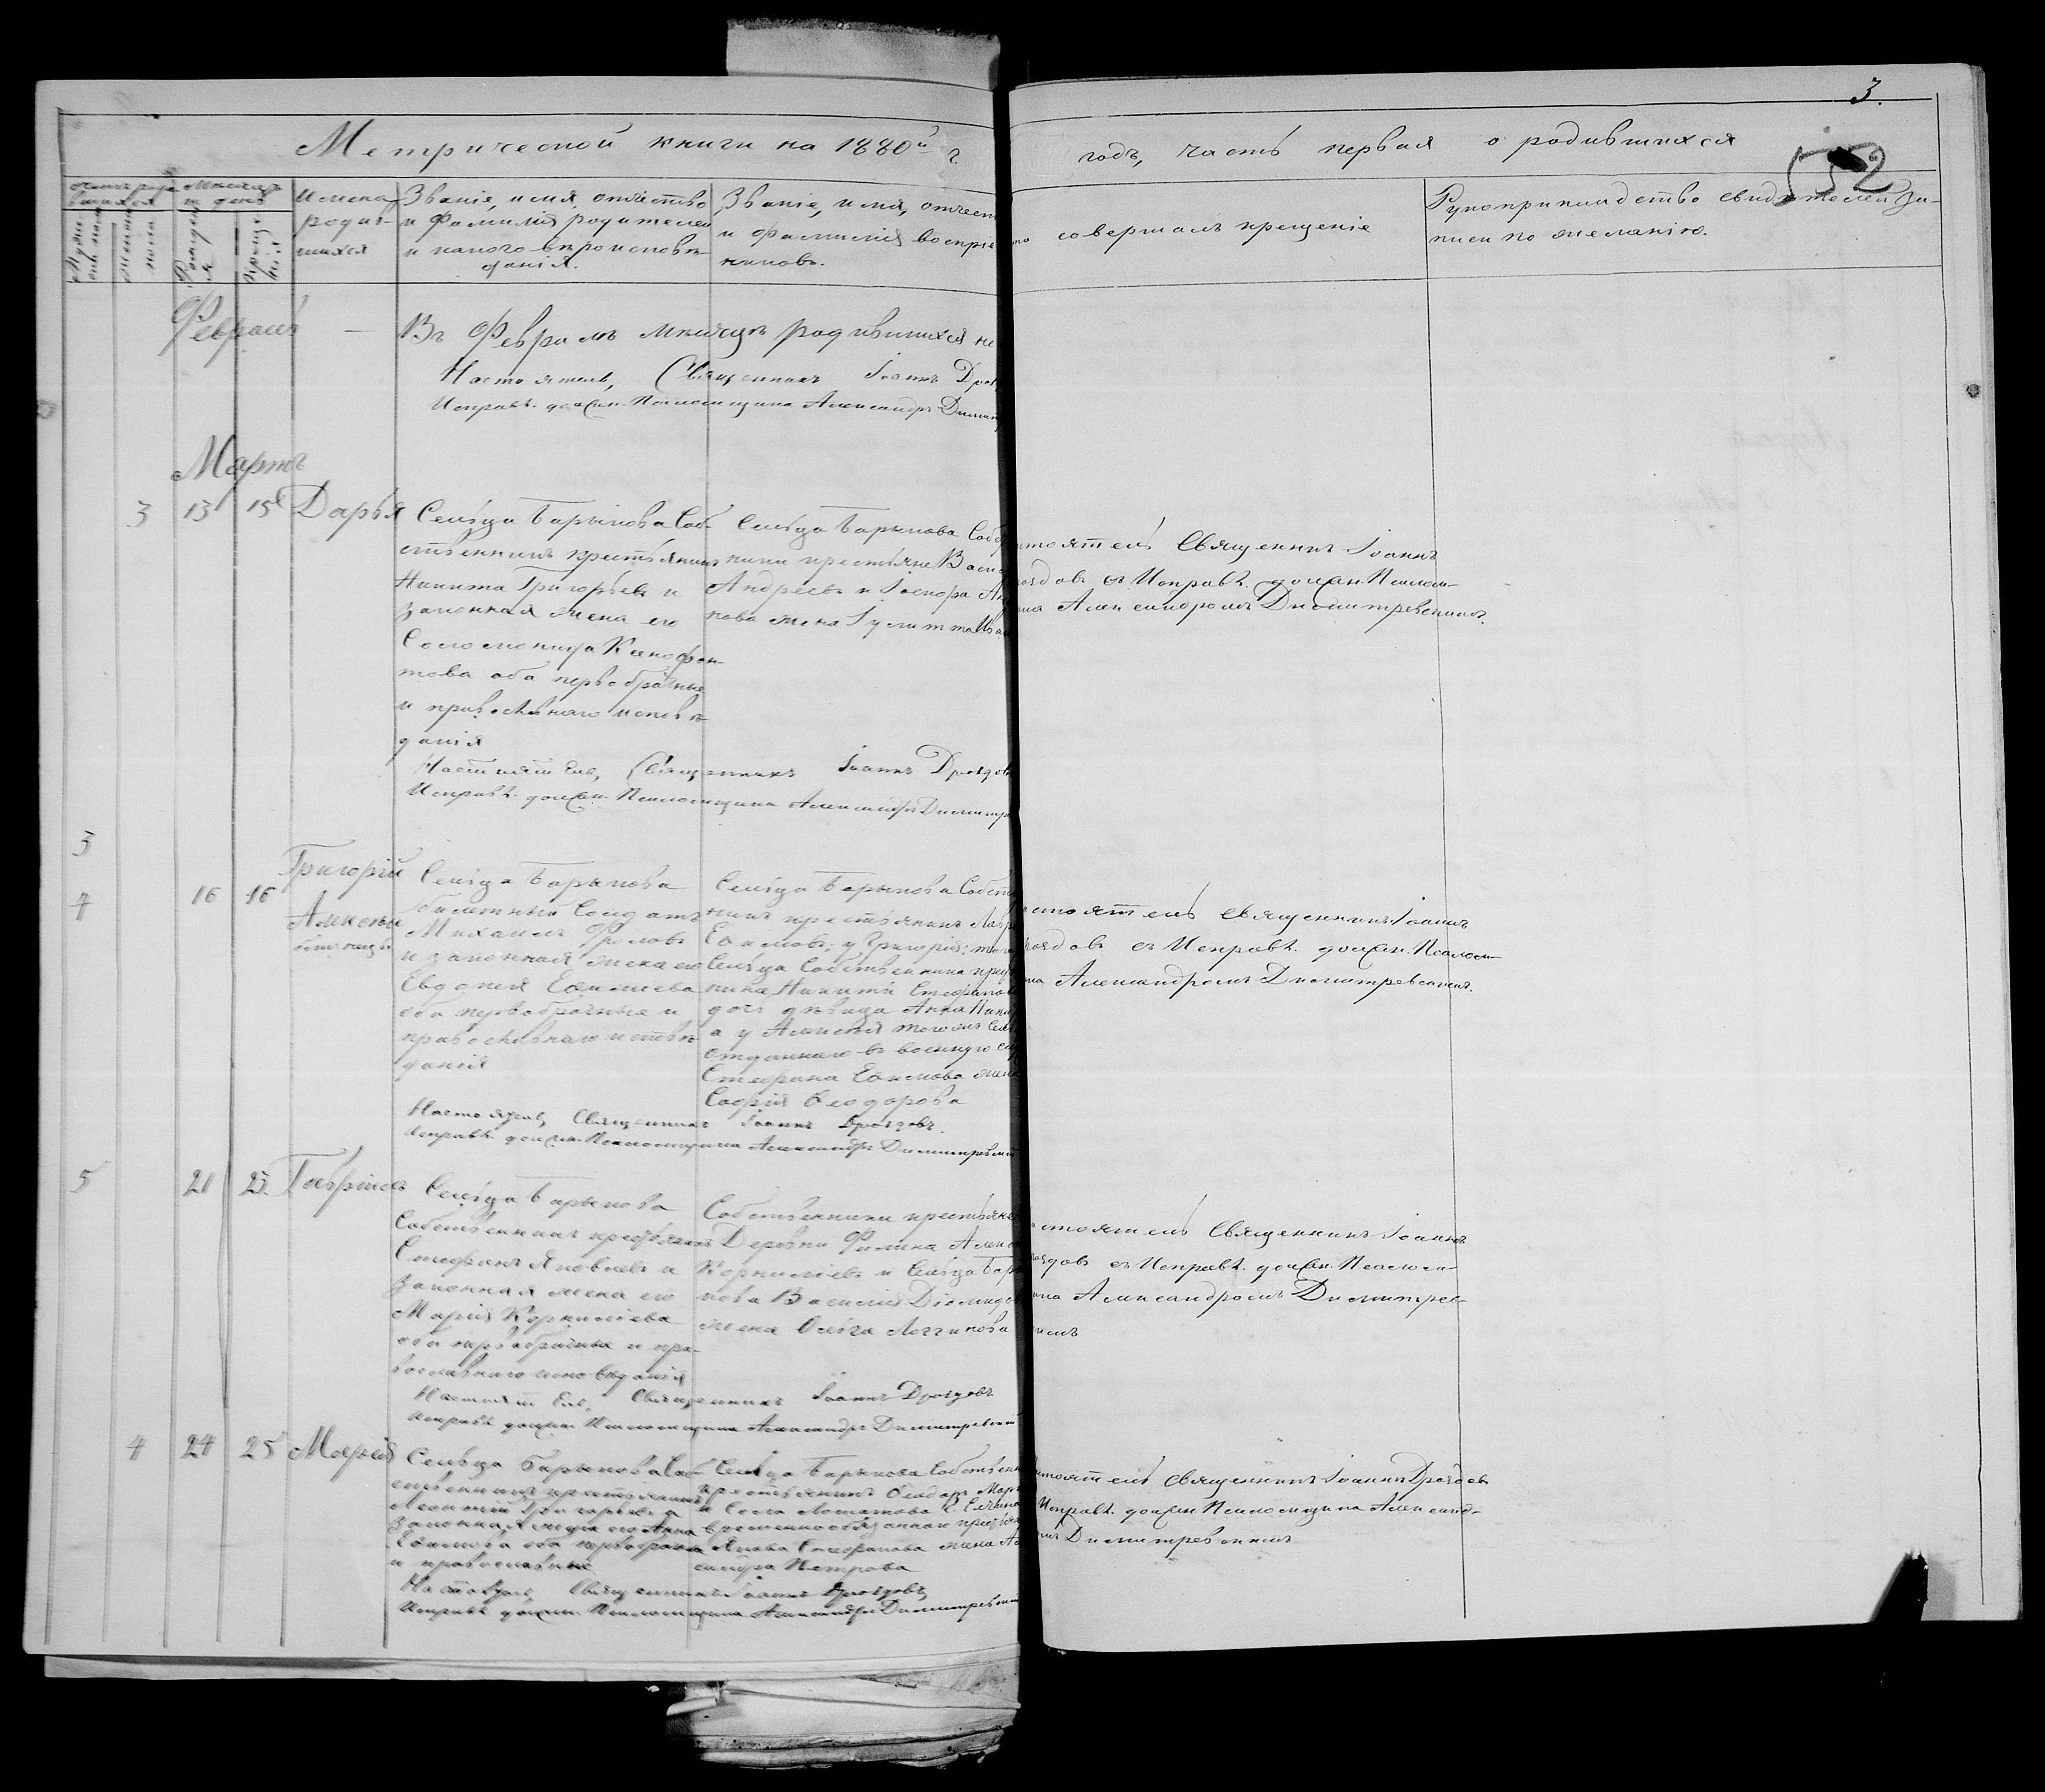 3.
Метрической книги на 1880й г.
годъ, часть первая о родившихся
552
Имена родив-
шихся
Званіе, имя, отчество
и фамилія родителей
и какого вѣроисповѣ-
данія.
Званіе, имя, отчест
и фамилія воспріе
никовъ.
совершалъ крещеніе
Рукоприкладство свидѣтелей за-
писи по желанію.
Февраль —
Въ Февралѣ мѣсяцѣ родившихся не
Настоятель, Священникъ Іоаннъ Дрозд
Исправл. должн. Псаломщика Александръ Димит
Мартъ
3 13 15 Дарья
Сельца Барыкова Соб-
ственникъ крестьянинъ
Никита Григорьевъ и
законная жена его
Соломонида Ксенофон-
това оба первобрачные
и православнаго исповѣ-
данія
Сельца Барыкова Соб
ники крестьяне Васи
Андреевъ и
жена Іулитта
стоятель Священникъ Іоаннъ
оздовъ съ Исправл. должн. Псалом-
ика Александромъ Димитревскимъ.
Настоятель, Священникъ Іоаннъ Дроздов
Исправл. должн. Псаломщика Александръ Димитр
3
Григорій
4 16 16
Алексѣй
близнецы
Сельца Барыкова
билетный Солдатъ
Михаилъ Фроловъ
и законная жена его
Евдокія Евфимиева
оба первобрачные и
православнаго исповѣ
данія
Сельца Барыкова Собст
никъ крестьянинъ Лавр
Евфимовъ; у Григорія; того
Сельца Собственника крест
нина Никиты Стефанов
дочь дѣвица Анна Ники
а у Алексѣя того же Сель
отданнаго въ военную сл
Стефана Евфимова жена
Софія Ѳеодорова
стоятель Священникъ Іоаннъ
роздовъ съ Исправл. должн. Псалом-
ика Александромъ Димитревскимъ.
Настоятель, Священникъ Іоаннъ Дроздовъ.
Исправл. должн. Псаломщика Александръ Димитревскій
5 21 23 Гавріилъ
Сельца Барыкова
Собственникъ крестьянинъ
Стефанъ Яковлевъ и
законная жена его
Марія Корниліева
оба первобрачные и пра-
вославнаго исповѣданія
Собственники крестьяне
Деревни Филина Алек
Корниліевъ и Сельца Бар
кова Василія Діомидов
жена Ольга Логгинова
стоятель Священникъ Іоаннъ
роздовъ съ Исправл. должн. Псалом-
ика Александромъ Димитрев-
скимъ
Настоятель, Священникъ Іоаннъ Дроздовъ
Исправл. должн. Псаломщика Александръ Димитревскій
4 24 25 Марія
Сельца Барыкова Соб-
ственникъ крестьянинъ
Леонтій Григорьевъ и
законная жена его Анна
Евфимова оба первобрачные
и православные
Сельца Барыкова Собственн
крестьянинъ Ѳеодоръ Марк
и Села
временнообязаннаго крестьян
Якова Стефанова жена Ал
ксандра Петрова
стоятель Священникъ Іоаннъ Дроздовъ
Исправл. должн. Псаломщика Александ-
омъ Димитревскимъ
Настоятель, Священникъ Іоаннъ Дроздовъ
Исправл. должн. Псаломщика Александръ Димитревскій